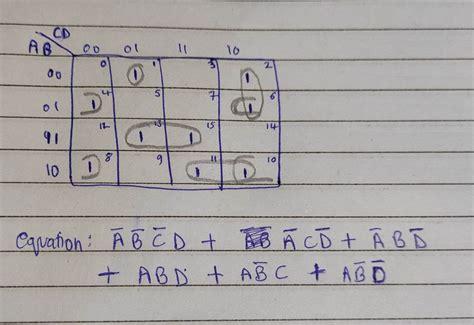 CD
AB 00 01 11 10
00 0 1 1 3 1 2
01 1 4 5 7 1 6
11 12 1 13 1 15 14
10 1 8 9 1 11 1 10
Equation: A̅ B̅ C̅ D + A̅ C D̅ + A̅ B D̅
+ A B D + A B̅ C + A B̅ D̅